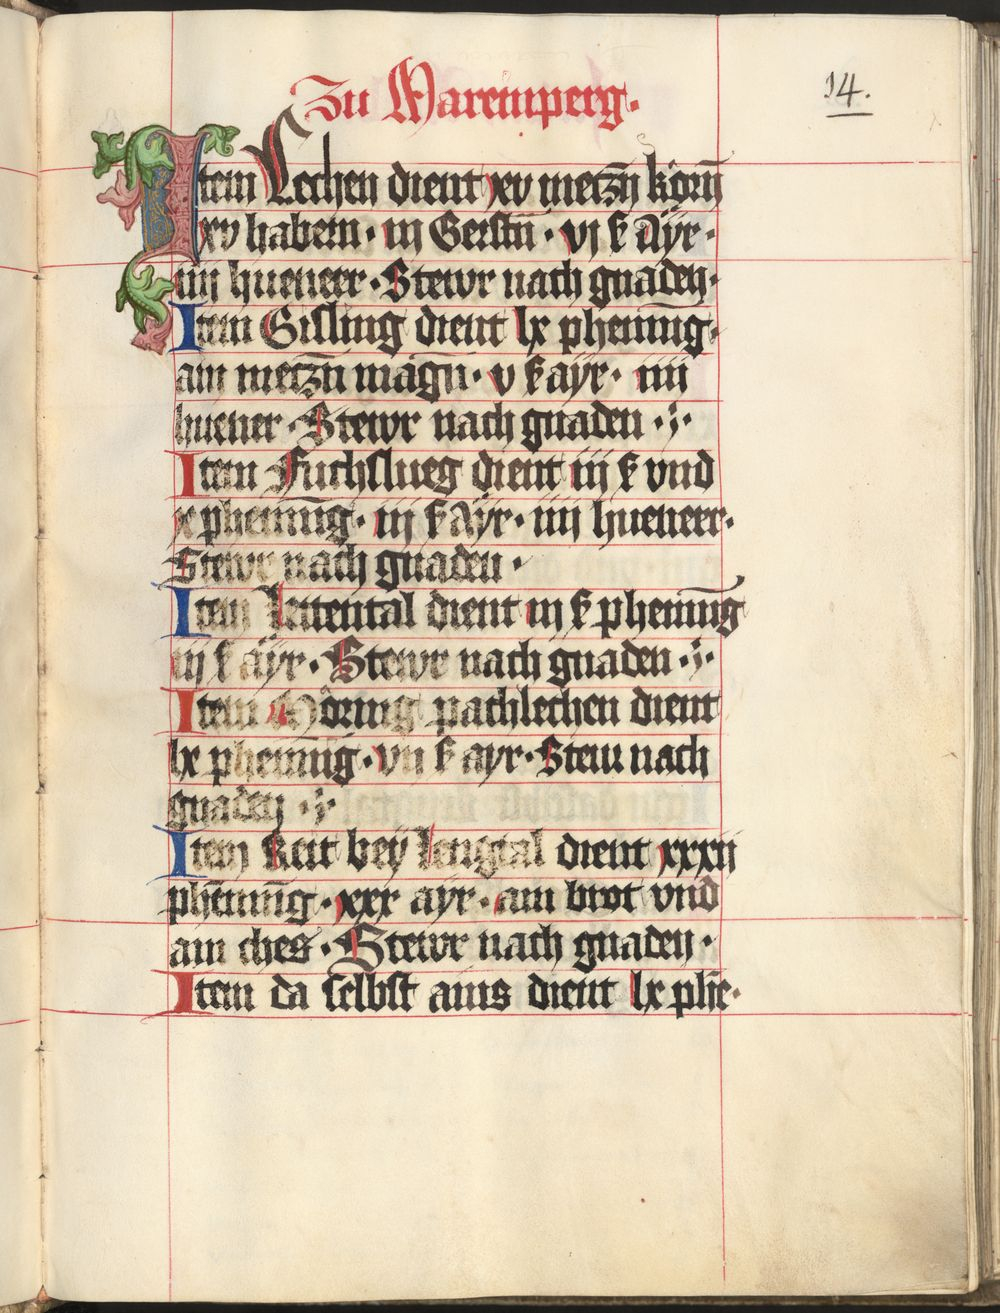 14.
Zu Maremperg.
Item Lechen dient xv metzñ korñ
xv habern · iij Gerstñ · vj ß Aÿr ·
iiij hueneer · Stewr nach gnaden ·
Item Gisling dient lx phenning ·
ain metzñ magñ · v ß aÿr · iiij
huener · Stewr nach gnaden ·
Item Fuchslueg dient iij ß vnd
x phening · iij ß Aÿr · iiij hueneer ·
Stewr nach gnaden ·
Item dient iij ß phening
iij ß aÿr · Stewr nach gnaden ·
Item pachlechen dient
lx phening · vij ß ayr · Stew nach
gnaden ·
Item Reit beÿ lengtal dient xxxij
phēning · xxx aÿr · ain brot vnd
ain ches · Stewr nach gnaden ·
Item da selbst ains dient lx phē ·